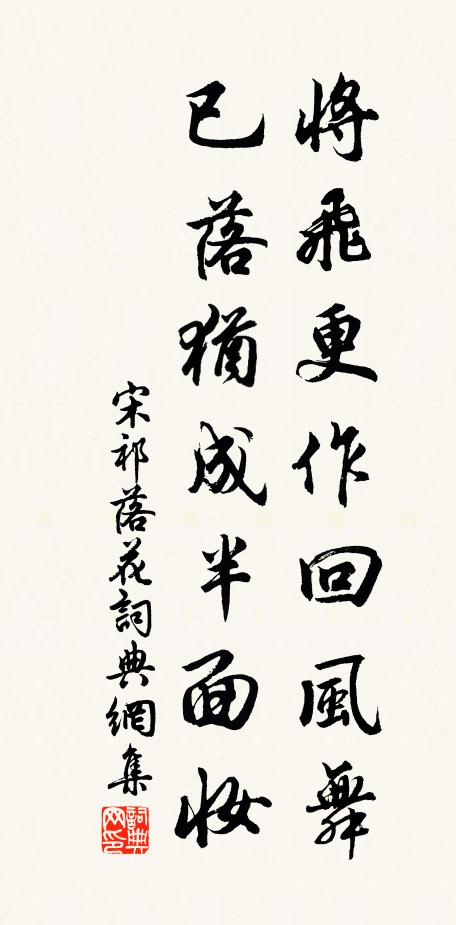 將飛更作回風舞
已落猶成半面妝
宋祁落花詞典網集
詞典网印